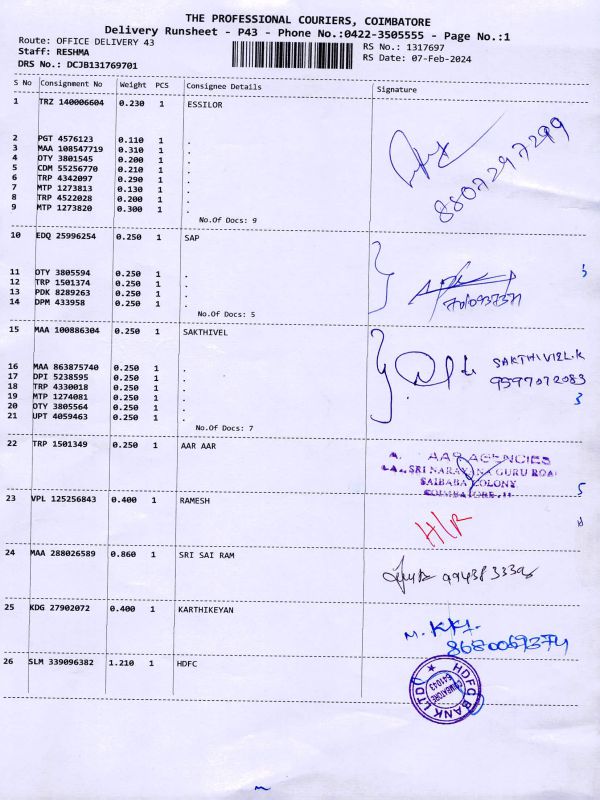 THE PROFESSIONAL COURIERS, COIMBATORE
Delivery Runsheet - P43 - Phone No.:0422-3505555 - Page No.:1
Route: OFFICE DELIVERY 43
RS No.: 1317697
Staff: RESHMA
RS Date: 07-Feb-2024
DRS No.: DCJB131769701
S No Consignment No Weight PCS Consignee Details Signature
1 TRZ 140006604 0.230 1 ESSILOR
2 PGT 4576123 0.110 1 .
3 MAA 108547719 0.310 1 .
4 OTY 3801545 0.200 1 .
5 CDM 55256770 0.210 1 .
6 TRP 4342097 0.290 1 .
7 MTP 1273813 0.130 1 .
8 TRP 4522028 0.200 1 .
9 MTP 1273820 0.300 1 .
8807297299
No.Of Docs: 9
10 EDQ 25996254 0.250 1 SAP
11 OTY 3805594 0.250 1 .
12 TRP 1501374 0.250 1 .
13 PDK 8289263 0.250 1 .
14 DPM 433958 0.250 1 .
No.Of Docs: 5
15 MAA 100886304 0.250 1 SAKTHIVEL
16 MAA 863875740 0.250 1 .
17 DPI 5238595 0.250 1 .
18 TRP 4330018 0.250 1 .
19 MTP 1274081 0.250 1 .
20 OTY 3805564 0.250 1 .
21 UPT 4059463 0.250 1 .
SAKTHIVEL.K
9597072083
No.Of Docs: 7
22 TRP 1501349 0.250 1 AAR AAR
AAR AGENCIES
SRI NARAYANA GURU ROAD
SAIBABA COLONY
COIMBATORE-11
23 VPL 125256843 0.400 1 RAMESH
H/R
24 MAA 288026589 0.860 1 SRI SAI RAM
25 KDG 27902072 0.400 1 KARTHIKEYAN
8680069374
26 SLM 339096382 1.210 1 HDFC
HDFC BANK LTD
COIMBATORE
641043